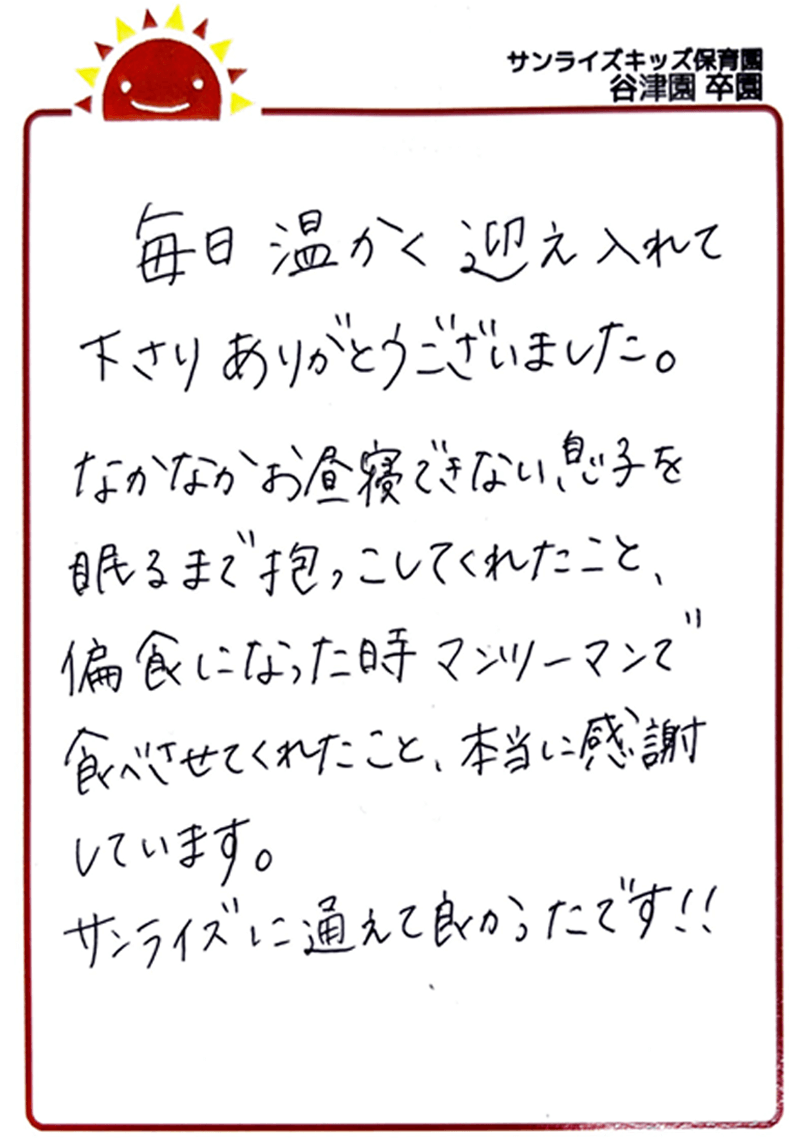 サンライズキッズ保育園
谷津園 卒園
毎日温かく迎え入れて
下さりありがとうございました。
なかなかお昼寝できない息子を
眠るまで抱っこしてくれたこと、
偏食になった時マンツーマンで
食べさせてくれたこと、本当に感謝
しています。
サンライズに通えて良かったです!!